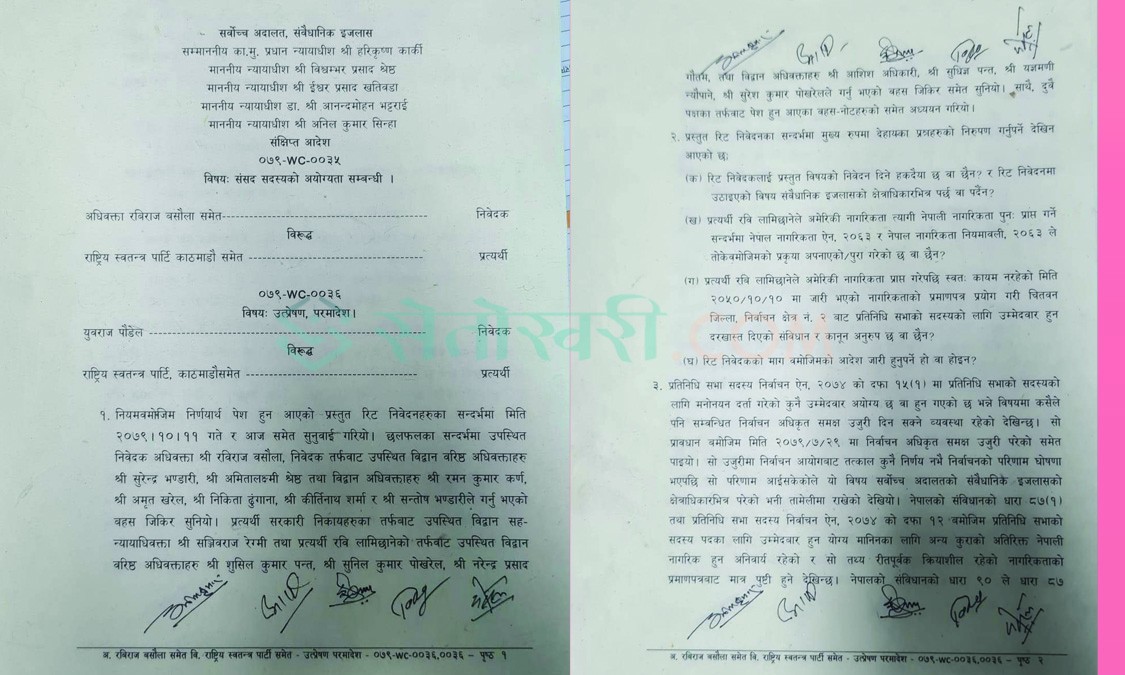 सर्वोच्च अदालत, संवैधानिक इजलास
सम्माननीय का.मु. प्रधान न्यायाधीश श्री हरिकृष्ण कार्की
माननीय न्यायाधीश श्री विश्वम्भर प्रसाद श्रेष्ठ
माननीय न्यायाधीश श्री ईश्वर प्रसाद खतिवडा
माननीय न्यायाधीश डा. श्री आनन्दमोहन भट्टराई
माननीय न्यायाधीश श्री अनिल कुमार सिन्हा
संक्षिप्त आदेश
०७९-WC-००३५
विषयः संसद सदस्यको अयोग्यता सम्बन्धी ।
अधिवक्ता रबिराज बसौला समेत------------------------------------ निवेदक
विरूद्ध
राष्ट्रिय स्वतन्त्र पार्टि काठमाडौ समेत ------------------------------- प्रत्यर्थी
०७९-WC-००३६
विषयः उत्प्रेषण, परमादेश।
युवराज पौडेल ------------------------------------------------ निवेदक
विरूद्ध
राष्ट्रिय स्वतन्त्र पार्टि, काठमाडौसमेत ------------------------------- प्रत्यर्थी
सेतोखरी.com
१. नियमबमोजिम निर्णयार्थ पेश हुन आएको प्रस्तुत रिट निवेदनहरुका सन्दर्भमा मिति
२०७९।१०।११ गते र आज समेत सुनुवाई गरियो। छलफलका सन्दर्भमा उपस्थित
निवेदक अधिवक्ता श्री रविराज बसौला, निवेदक तर्फबाट उपस्थित विद्वान वरिष्ठ अधिवक्ताहरू
श्री सुरेन्द्र भण्डारी, श्री अमितालक्ष्मी श्रेष्ठ तथा विद्वान अधिवक्ताहरु श्री रमन कुमार कर्ण,
श्री अमृत खरेल, श्री निकिता ढुंगाना, श्री कीर्तिनाथ शर्मा र श्री सन्तोष भण्डारीले गर्नु भएको
बहस जिकिर सुनियो। प्रत्यर्थी सरकारी निकायहरुका तर्फबाट उपस्थित विद्वान सह-
न्यायाधिवक्ता श्री सञ्जिवराज रेग्मी तथा प्रत्यर्थी रवि लामिछानेको तर्फबाट उपस्थित विद्वान
वरिष्ठ अधिवक्ताहरु श्री शुसिल कुमार पन्त, श्री सुनिल कुमार पोखरेल, श्री नरेन्द्र प्रसाद
अ. रबिराज बसौला समेत वि. राष्ट्रिय स्वतन्त्र पार्टी समेत - उत्प्रेषण परमादेश - ०७९-WC-००३६,००३६ - पृष्ठ १
गौतम, तथा विद्वान अधिवक्ताहरु श्री आशिश अधिकारी, श्री सुधिज्ञ पन्त, श्री यज्ञमणी
न्यौपाने, श्री सुरेश कुमार पोखरेलले गर्नु भएको बहस जिकिर समेत सुनियो। साथै, दुवै
पक्षका तर्फबाट पेश हुन आएका बहस-नोटहरुको समेत अध्ययन गरियो।
२. प्रस्तुत रिट निवेदनका सन्दर्भमा मुख्य रुपमा देहायका प्रश्नहरुको निरुपण गर्नुपर्ने देखिन
आएको छः
(क) रिट निवेदकलाई प्रस्तुत विषयको निवेदन दिने हकदैया छ वा छैन? र रिट निवेदनमा
उठाइएको विषय संवैधानिक इजलासको क्षेत्राधिकारभित्र पर्छ वा पर्दैन?
(ख) प्रत्यर्थी रबि लामिछानेले अमेरिकी नागरिकता त्यागी नेपाली नागरिकता पुनः प्राप्त गर्ने
सन्दर्भमा नेपाल नागरिकता ऐन, २०६३ र नेपाल नागरिकता नियमावली, २०६३ ले
तोकेबमोजिमको प्रकृया अपनाएको/पुरा गरेको छ वा छैन?
(ग) प्रत्यर्थी रबि लामिछानेले अमेरिकी नागरिकता प्राप्त गरेपछि स्वतः कायम नरहेको मिति
२०५०/१०/१० मा जारी भएको नागरिकताको प्रमाणपत्र प्रयोग गरी चितवन
जिल्ला, निर्वाचन क्षेत्र नं. २ बाट प्रतिनिधि सभाको सदस्यको लागि उम्मेदवार हुन
दरखास्त दिएको संविधान र कानून अनुरुप छ वा छैन?
(घ) रिट निवेदकको माग बमोजिमको आदेश जारी हुनुपर्ने हो वा होइन?
३. प्रतिनिधि सभा सदस्य निर्वाचन ऐन, २०७४ को दफा १५(१) मा प्रतिनिधि सभाको सदस्यको
लागि मनोनयन दर्ता गरेको कुनै उम्मेदवार अयोग्य छ वा हुन गएको छ भन्ने विषयमा कसैले
पनि सम्बन्धित निर्वाचन अधिकृत समक्ष उजुरी दिन सक्ने व्यवस्था रहेको देखिन्छ। सो
प्रावधान बमोजिम मिति २०७९/७/२९ मा निर्वाचन अधिकृत समक्ष उजुरी परेको समेत
पाइयो। सो उजुरीमा निर्वाचन आयोगबाट तत्काल कुनै निर्णय नभै निर्वाचनको परिणाम घोषणा
भएपछि सो परिणाम आईसकेकोले यो विषय सर्वोच्च अदालतको संवैधानिक इजलासको
क्षेत्राधिकारभित्र परेको भनी तामेलीमा राखेको देखियो। नेपालको संविधानको धारा ८७(१)
तथा प्रतिनिधि सभा सदस्य निर्वाचन ऐन, २०७४ को दफा १२ बमोजिम प्रतिनिधि सभाको
सदस्य पदका लागि उम्मेदवार हुन योग्य मानिनका लागि अन्य कुराको अतिरिक्त नेपाली
नागरिक हुन अनिवार्य रहेको र सो तथ्य रीतपूर्वक कियाशील रहेको नागरिकताको
प्रमाणपत्रबाट मात्र पुष्टी हुने देखिन्छ। नेपालको संविधानको धारा ९० ले धारा ८७
अ. रबिराज बसौला समेत वि. राष्ट्रिय स्वतन्त्र पार्टी समेत - उत्प्रेषण परमादेश - ०७९-WC-००३६,००३६ - पृष्ठ २